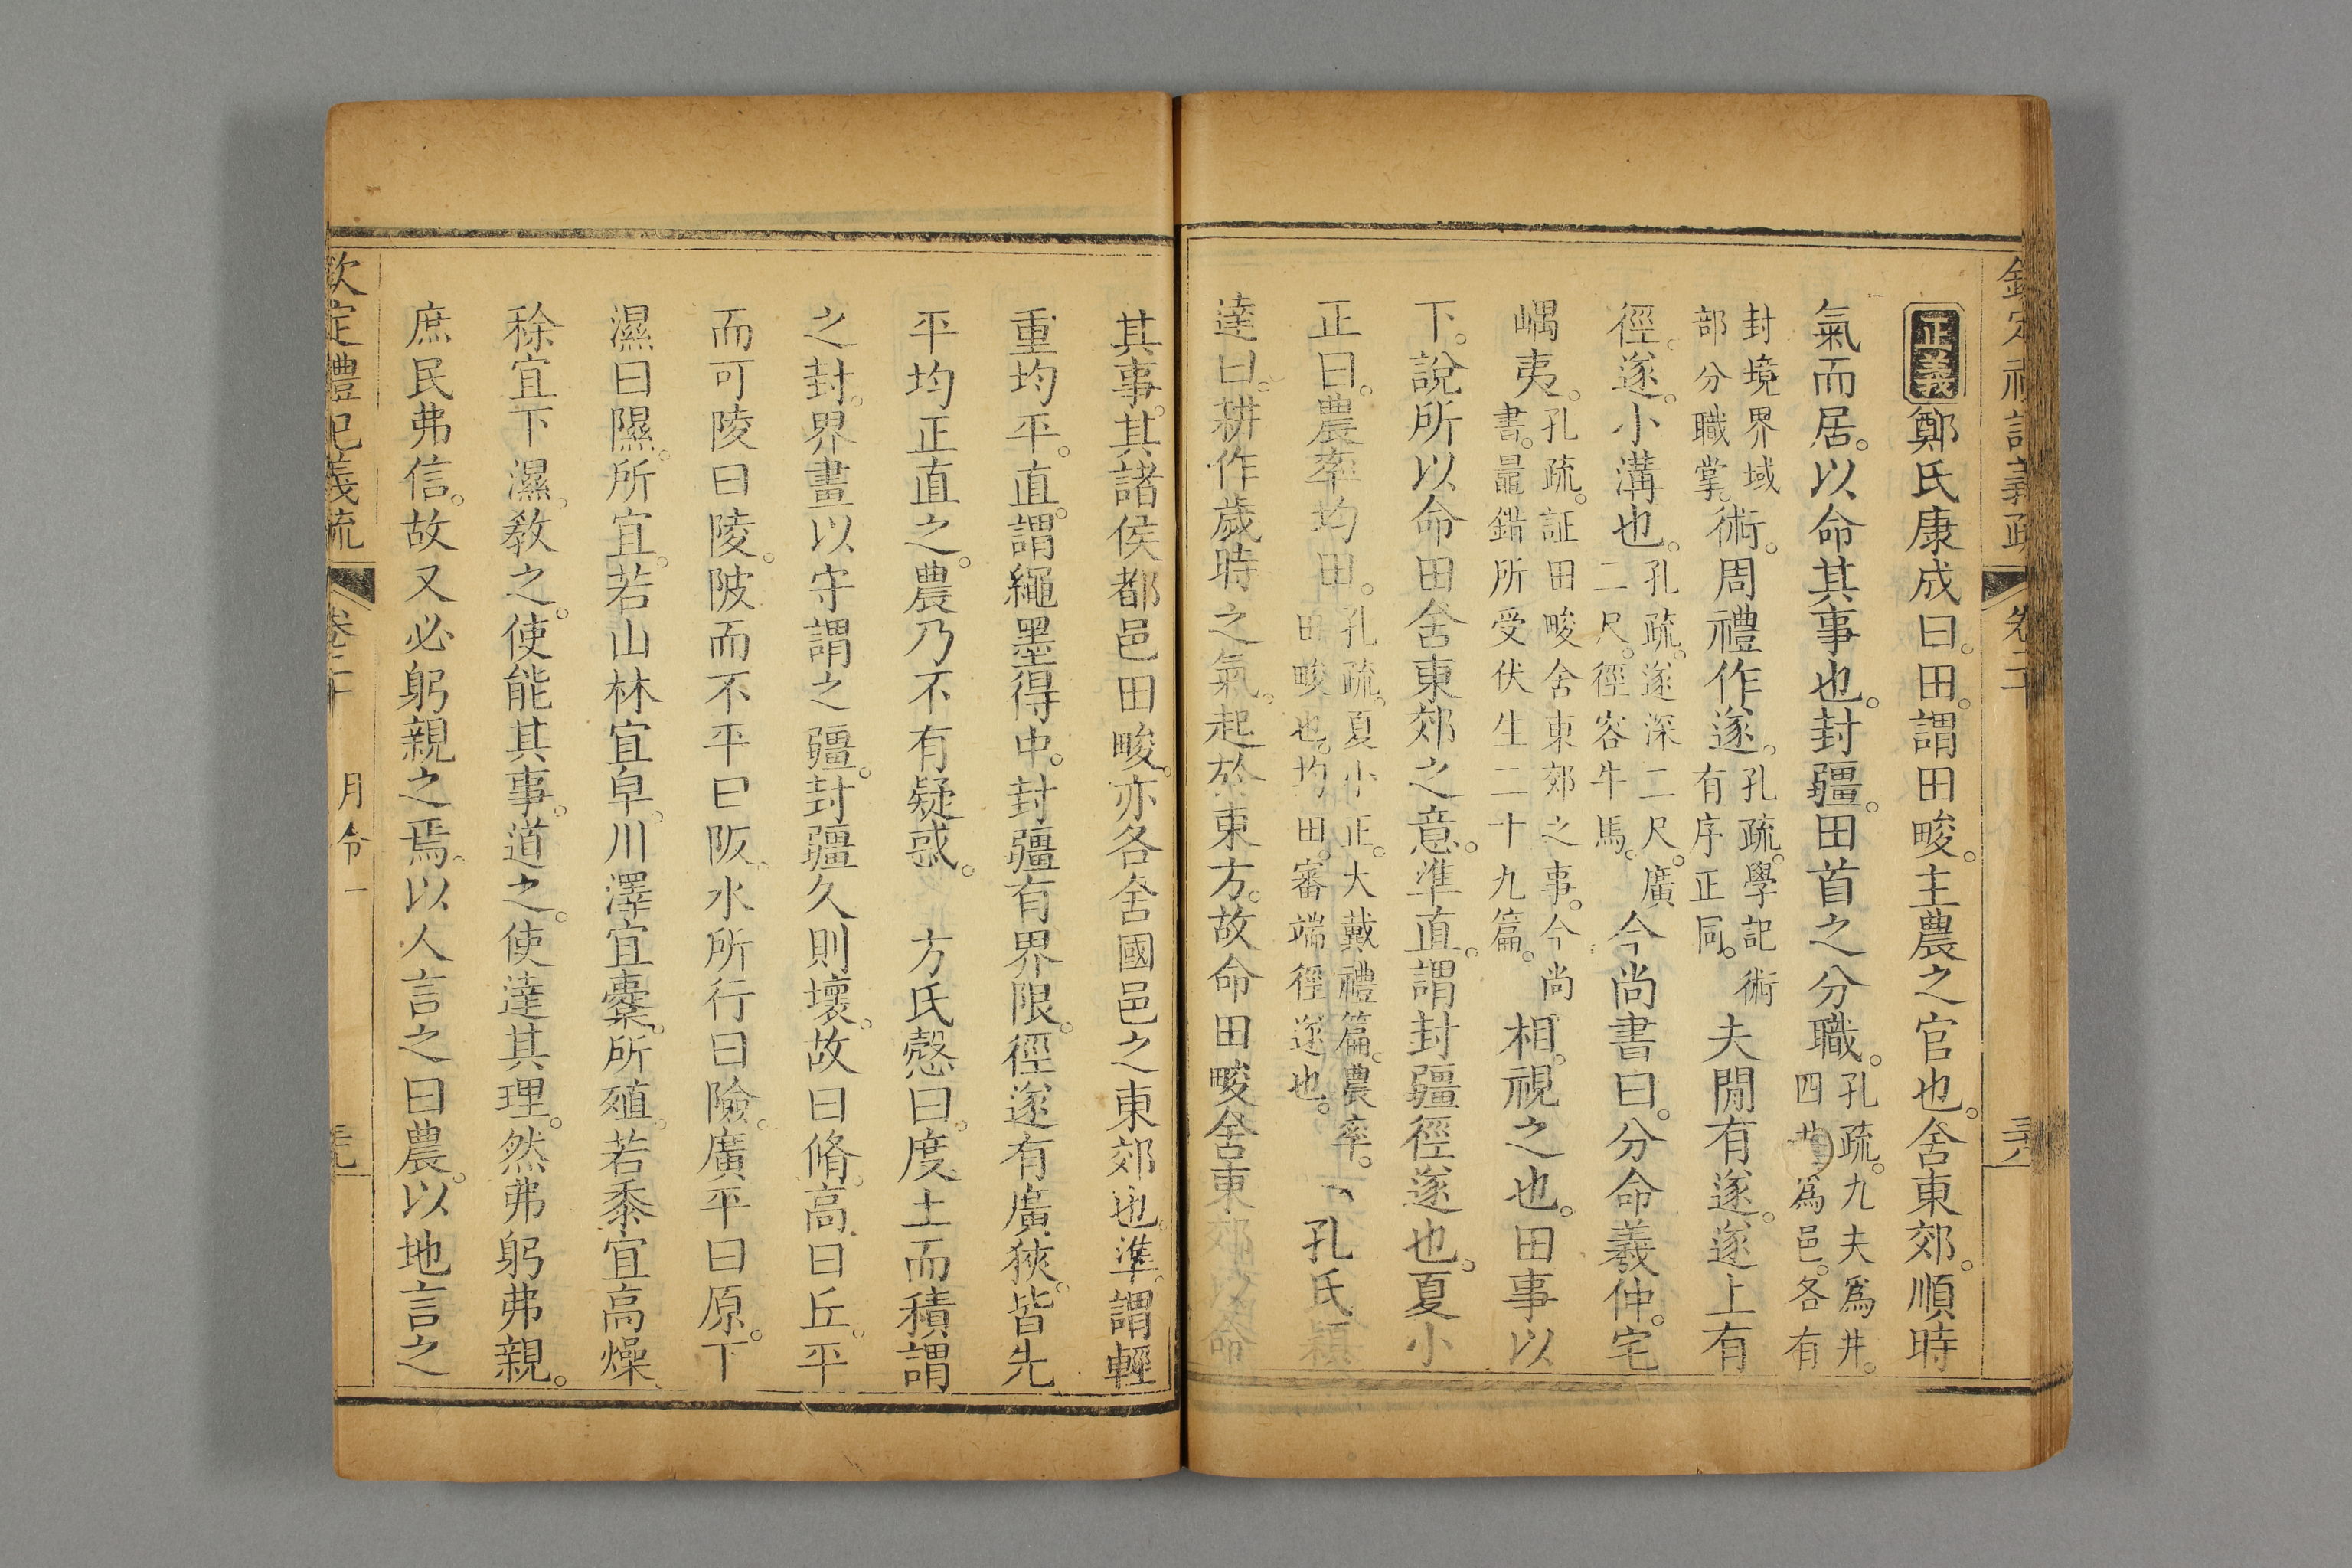 正義鄭氏康成曰。田。謂田畯。主農之官也。舍東郊。順時
氣而居。以命其事也。封疆。田首之分職。孔疏。九夫爲井。四井爲邑。各有
封境界域部分職掌。術。周禮作遂。孔疏。學記術有序正同。夫閒有遂。遂上有
徑。遂。小溝也。孔疏。遂深二尺。廣二尺。徑容牛馬。今尚書曰。分命羲仲。宅
嵎夷。孔疏。証田畯舍東郊之事。今尚書。鼂錯所受伏生二十九篇。相。視之也。田事以
下。說所以命田舍東郊之意。準直。謂封疆徑遂也。夏小
正曰。農率均田。孔疏。夏小正。大戴禮篇。農率。田畯也。均田。審端徑遂也。孔氏穎
達曰。耕作歲時之氣。起於東方。故命田畯舍東郊以命
其事。其諸侯都邑田畯。亦各舍國邑之東郊也。準。謂輕
重均平。直。謂繩墨得中。封疆有界限。徑遂有廣狹。皆先
平均正直之。農乃不有疑惑。方氏慤曰。度土而積謂
之封。界畫以守謂之疆。封疆久則壞。故曰脩。高曰丘。平
而可陵曰陵。陂而不平曰阪。水所行曰險。廣平曰原。下
濕曰隰。所宜。若山林宜皁。川澤宜櫜。所殖。若黍宜高燥
稌宜下濕。教之。使能其事。道之。使達其理。然弗躬弗親。
庶民弗信。故又必躬親之焉。以人言之曰農。以地言之
欽定禮記義疏 卷二十 月令一